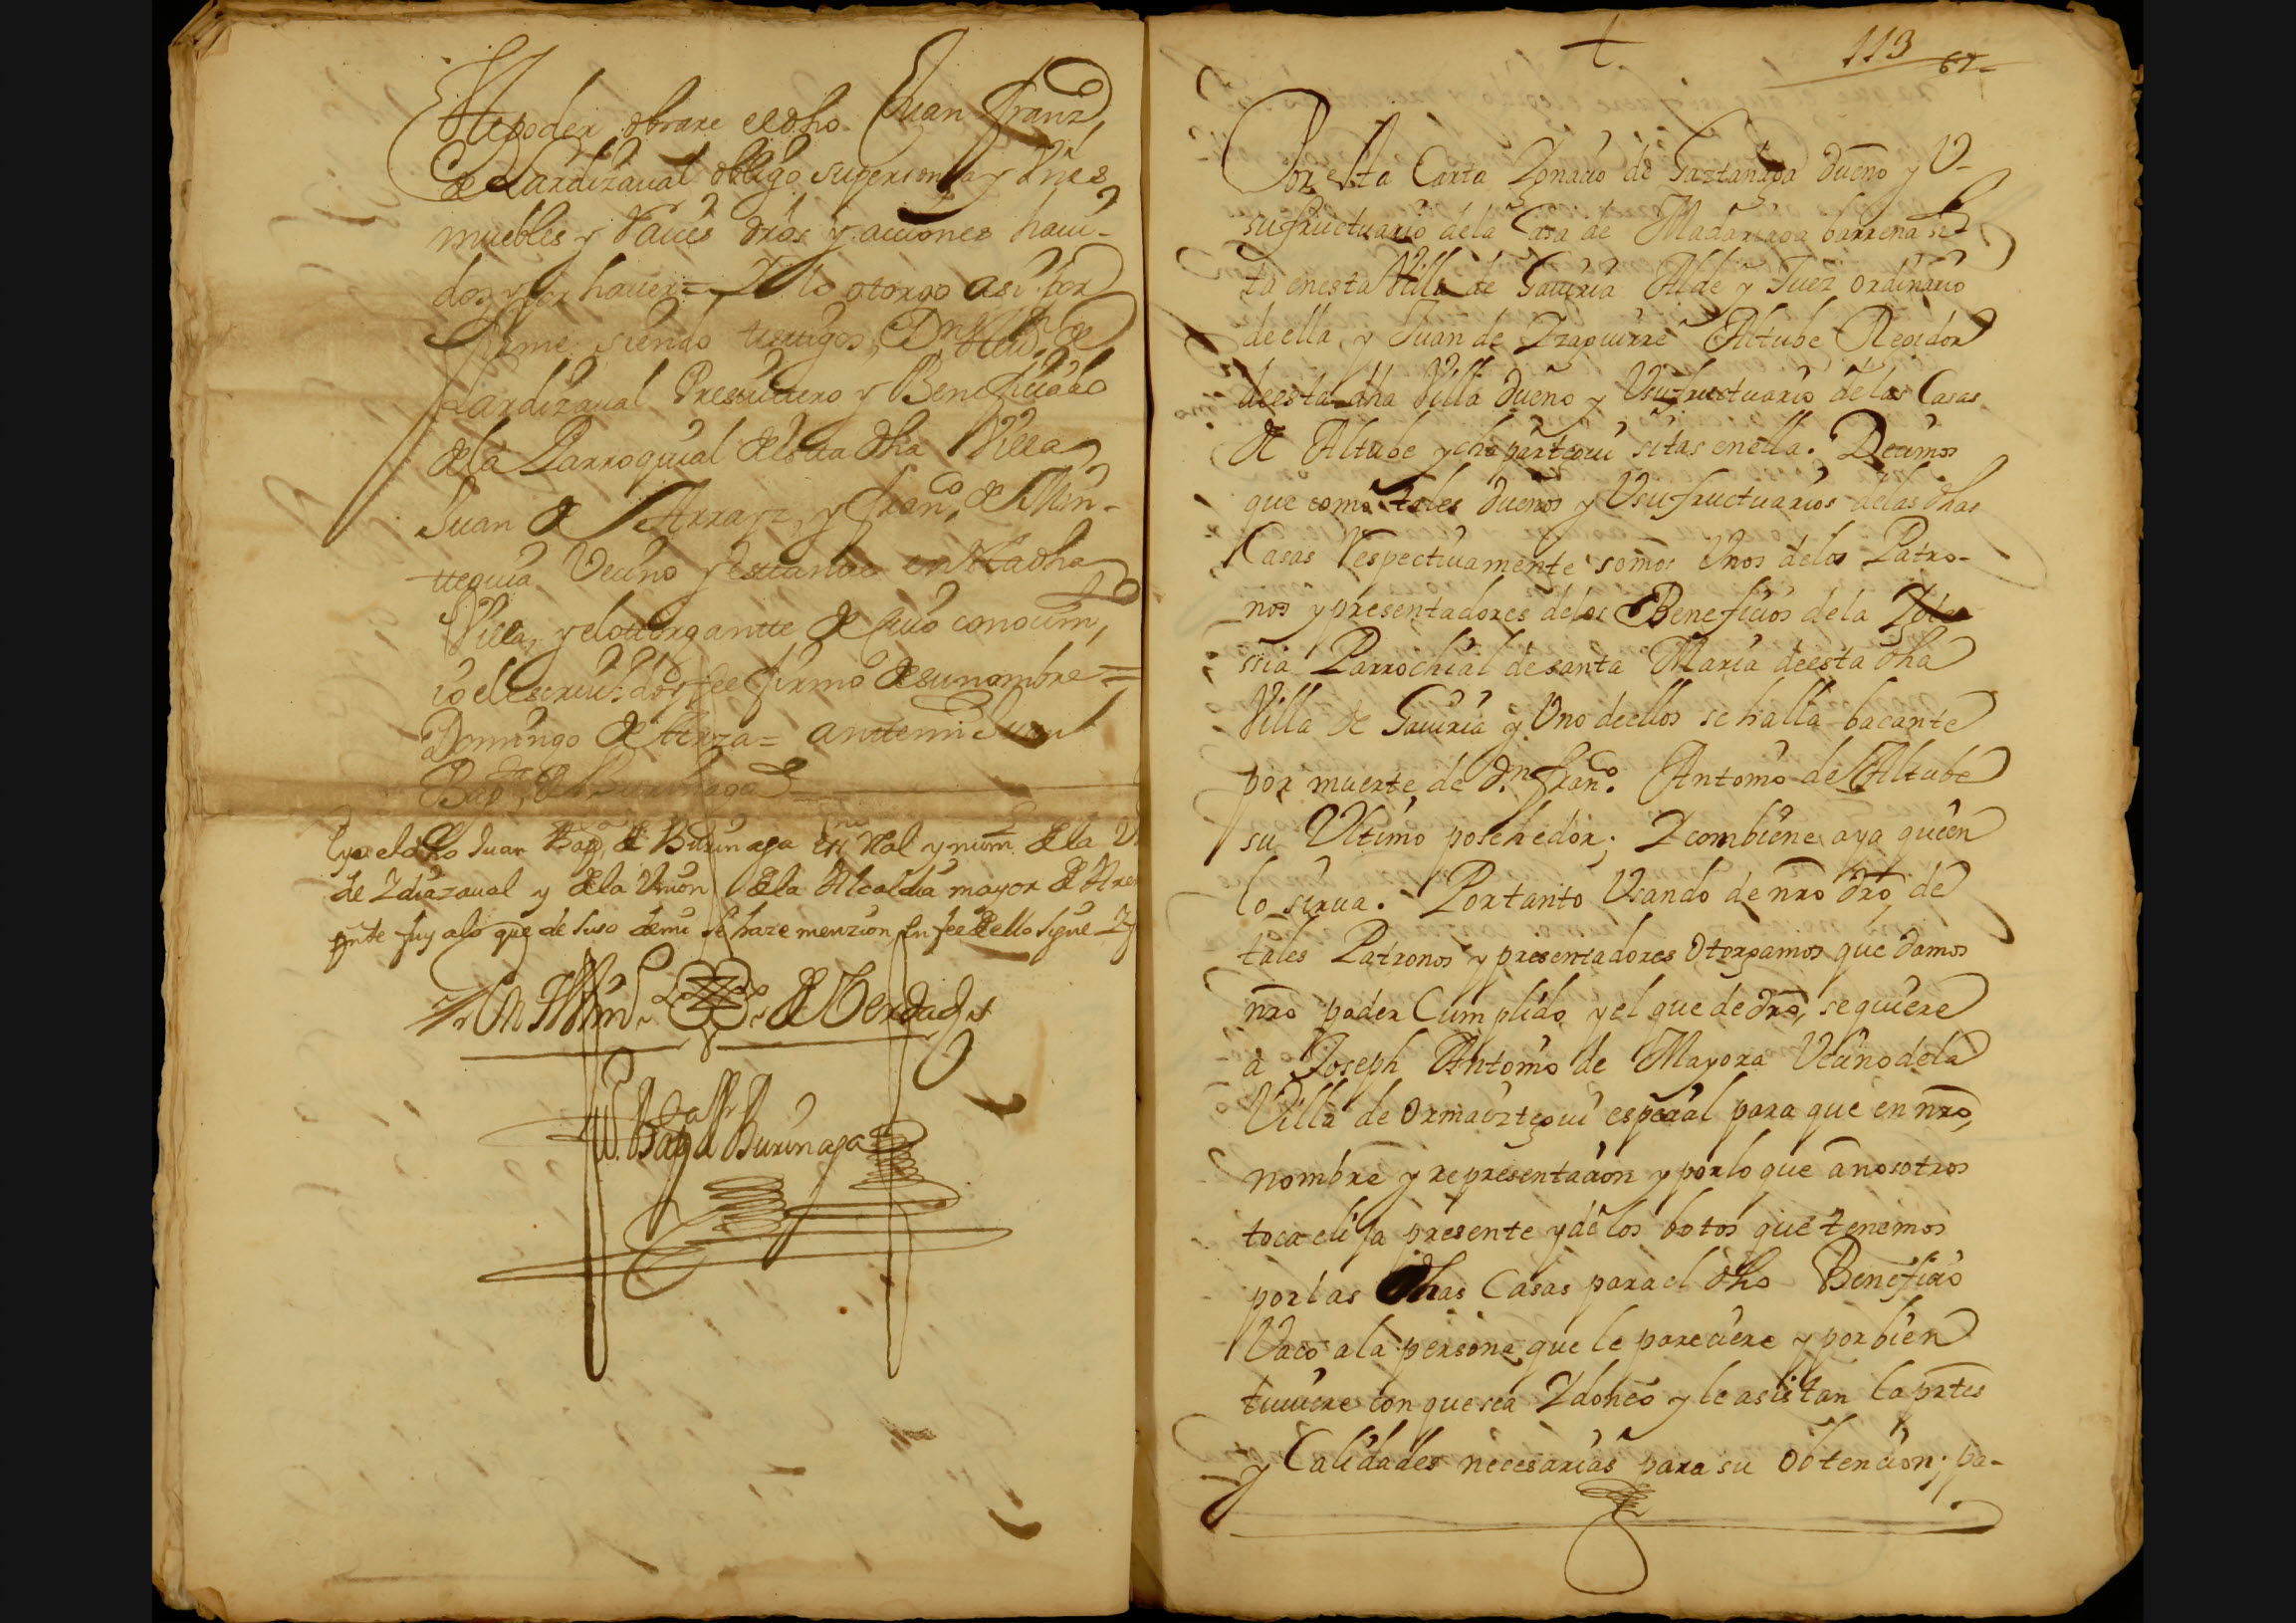 Este poder obrare el dho Juan Franz,
de Lardizaual obligo su persona y vnes
muebles y Raices dros y acciones haui-
dos y por hauer = Y lo otorgo asi por
firme siendo testigos, Dn
Lardizaual Presuitero y Beneficiado
de la Parroquial de esta dha Villa
Juan de Arrayz, y Franco, de Min-
tteguia Vecino y estante en esta dha
Villa, y el ottorgantte de cuio conocim,
io el escriu. doy fee firmo de su nombre =
Domingo de Aterza = anttemi Juan
Bapta, de Burinaga
E yo el dho Juan Bapta, de Burinaga esno Ral y num de la V
de Idiazaual y de la Vnion de la Alcaldia mayor de Are
pnte fuy alo que de suso de mi se haze menzion, En fee de ello signe Y
En Ttim de Verdad
Ju. Bapta de Burinaga
113
67
Por esta Carta Ygnacio de Gaztañaga dueño y V-
sufructuario de la Casa de Madariaga barrena si-
ta en esta Villa de Gauiria Alde y Juez ordinario
de ella, y Juan de Yzaguirre Altube Regidor
de esta dha Villa dueño y Vsufructuario de las Casas
de Altube y chaparteguì sitas en ella. Decimos
que como tales dueños y Vsufructuarios delas dhas
Casas Respectiuamente somos Vnos delos Patro-
nos y presentadores delos Beneficios de la Ygle
ssia Parrochial de santa Maria de esta dha
Villa de Gauiria y Vno de ellos se halla bacante
por muerte de Dn Franco. Antonio de Altube
su Vltimo posehedor; Y combiene aya quien
lo sirua. Portanto Vsando de nro dro, de
tales Patronos y presentadores Otorgamos que damos
nro poder Cumplido y el que de dro, se quiere
a Joseph Antonio de Mayora Vecino de la
Villa de ormaiztegui especial para que en nro,
nombre y representacion y por lo que a nosotros
toca elija presente y dè los botos que tenemos
por las dhas Casas para el dho Beneficio
Vaco a la persona que le pareciere y por bien
tuuiere con que sea Ydoneo y le asistan las prtes
y Calidades necesarias para su obtencion; pa-